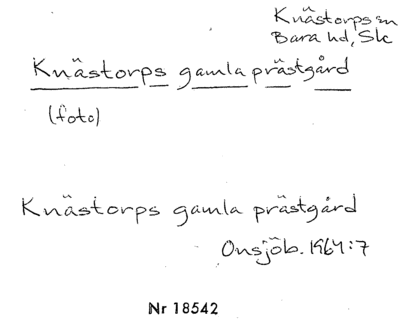 Knästorps sn
Bara hd, Sk
Knästorps gamla prästgård
(foto)
Knästorps gamla prästgård
Onsjöb. 1964:7
Nr 18542